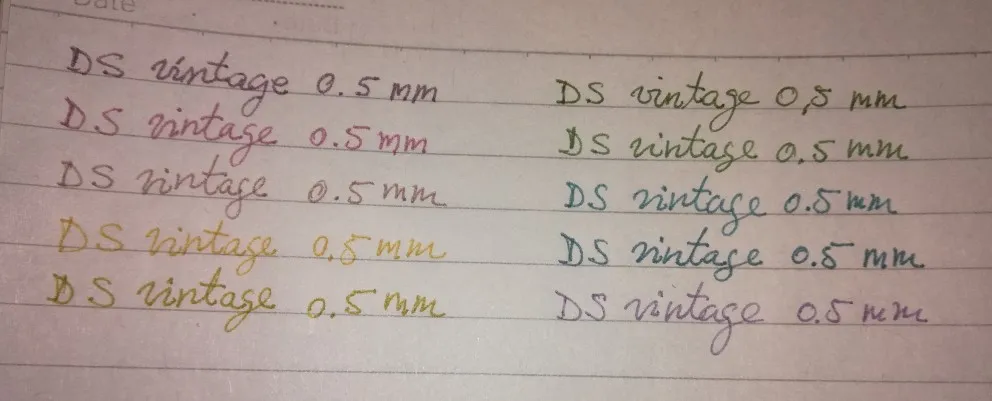 Date
DS vintage 0.5 mm
DS vintage 0.5 mm
DS vintage 0.5 mm
DS vintage 0.5 mm
DS vintage 0.5 mm
DS vintage 0,5 mm
DS vintage 0.5 mm
DS vintage 0.5 mm
DS vintage 0.5 mm
DS vintage 0.5 mm